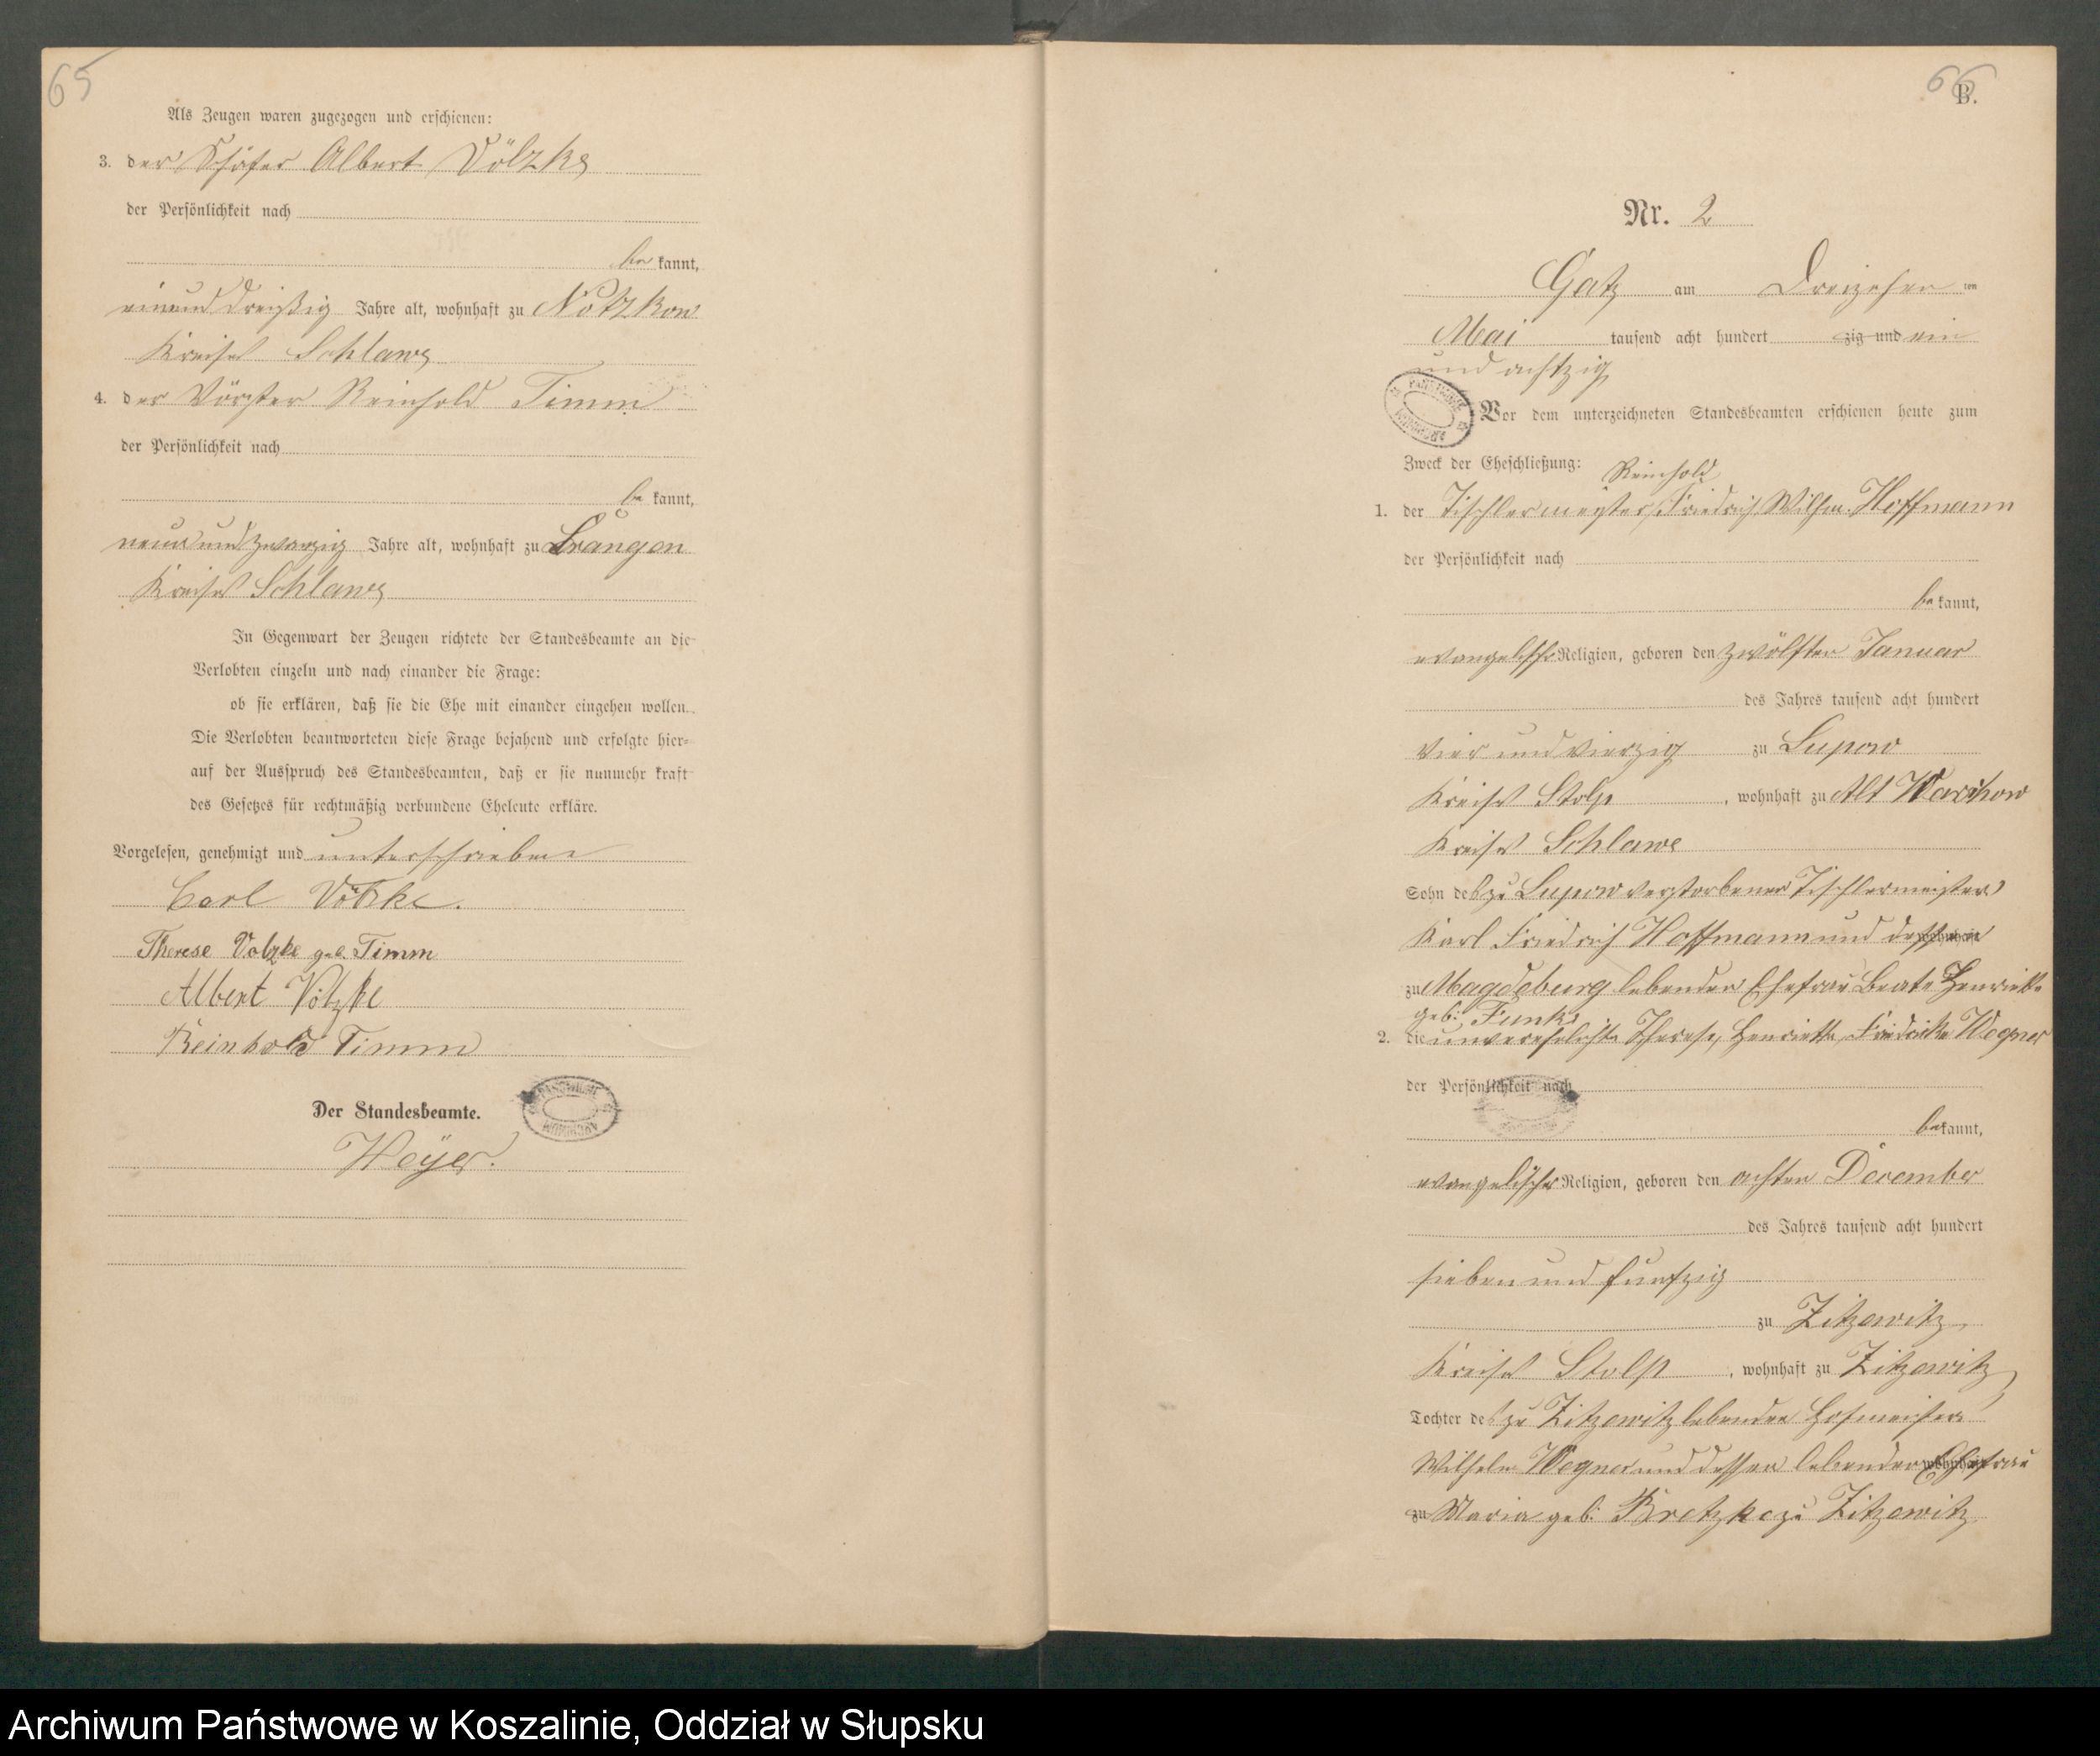 65
Als Zeugen waren zugezogen und erschienen:
3. der Schäfer Albert Völzke
der Persönlichkeit nach
be kannt,
einund dreißig Jahre alt, wohnhaft zu Notzkow
Kreises Schlawe
4. der Förster Reinhold Timm
der Persönlichkeit nach
be kannt,
neun und zwanzig Jahre alt, wohnhaft zu Krangen
Kreises Schlawe
In Gegenwart der Zeugen richtete der Standesbeamte an die
Verlobten einzeln und nach einander die Frage:
ob sie erklären, daß sie die Ehe mit einander eingehen wollen.
Die Verlobten beantworteten diese Frage bejahend und erfolgte hier-
auf der Ausspruch des Standesbeamten, daß er sie nunmehr kraft
des Gesetzes für rechtmäßig verbundene Eheleute erkläre.
Vorgelesen, genehmigt und unterschrieben
Carl Völzke.
Therese Volzke geb. Timm
Albert Völzke
Reinhold Timm
Der Standesbeamte.
Weyer.
66
B.
Nr. 2
Gatz am Dreizehn ten
Mai tausend acht hundert zig und ein
und achtzig
Vor dem unterzeichneten Standesbeamten erschienen heute zum
Zweck der Eheschließung:
Reinhold
1. der Tischlermeister, Friedrich Wilhm. Hoffmann
der Persönlichkeit nach
be kannt,
evangelischer Religion, geboren den zwölften Januar
des Jahres tausend acht hundert
vier und vierzig zu Lupow
Kreises Stolp, wohnhaft zu Alt Warschow
Kreises Schlawe
Sohn des zu Lupow verstorbenen Tischlermeisters
Karl Friedrich Hoffmann und dessen wohnhaft
zu Magdeburg lebenden Ehefrau Beate Henriette
geb. Funk
2. die unverehelichte Therese, Henriette, Friedrike Wegner
der Persönlichkeit nach
be kannt,
evangelischer Religion, geboren den achten December
des Jahres tausend acht hundert
sieben und funfzig
zu Zitzewitz,
Kreises Stolp, wohnhaft zu Zitzewitz,
Tochter des zu Zitzewitz lebenden Hofmeisters
Wilhelm Wegner und dessen lebenden wohnhaft Ehefrau
zu Maria geb. Bretzke zu Zitzewitz
Archiwum Państwowe w Koszalinie, Oddział w Słupsku